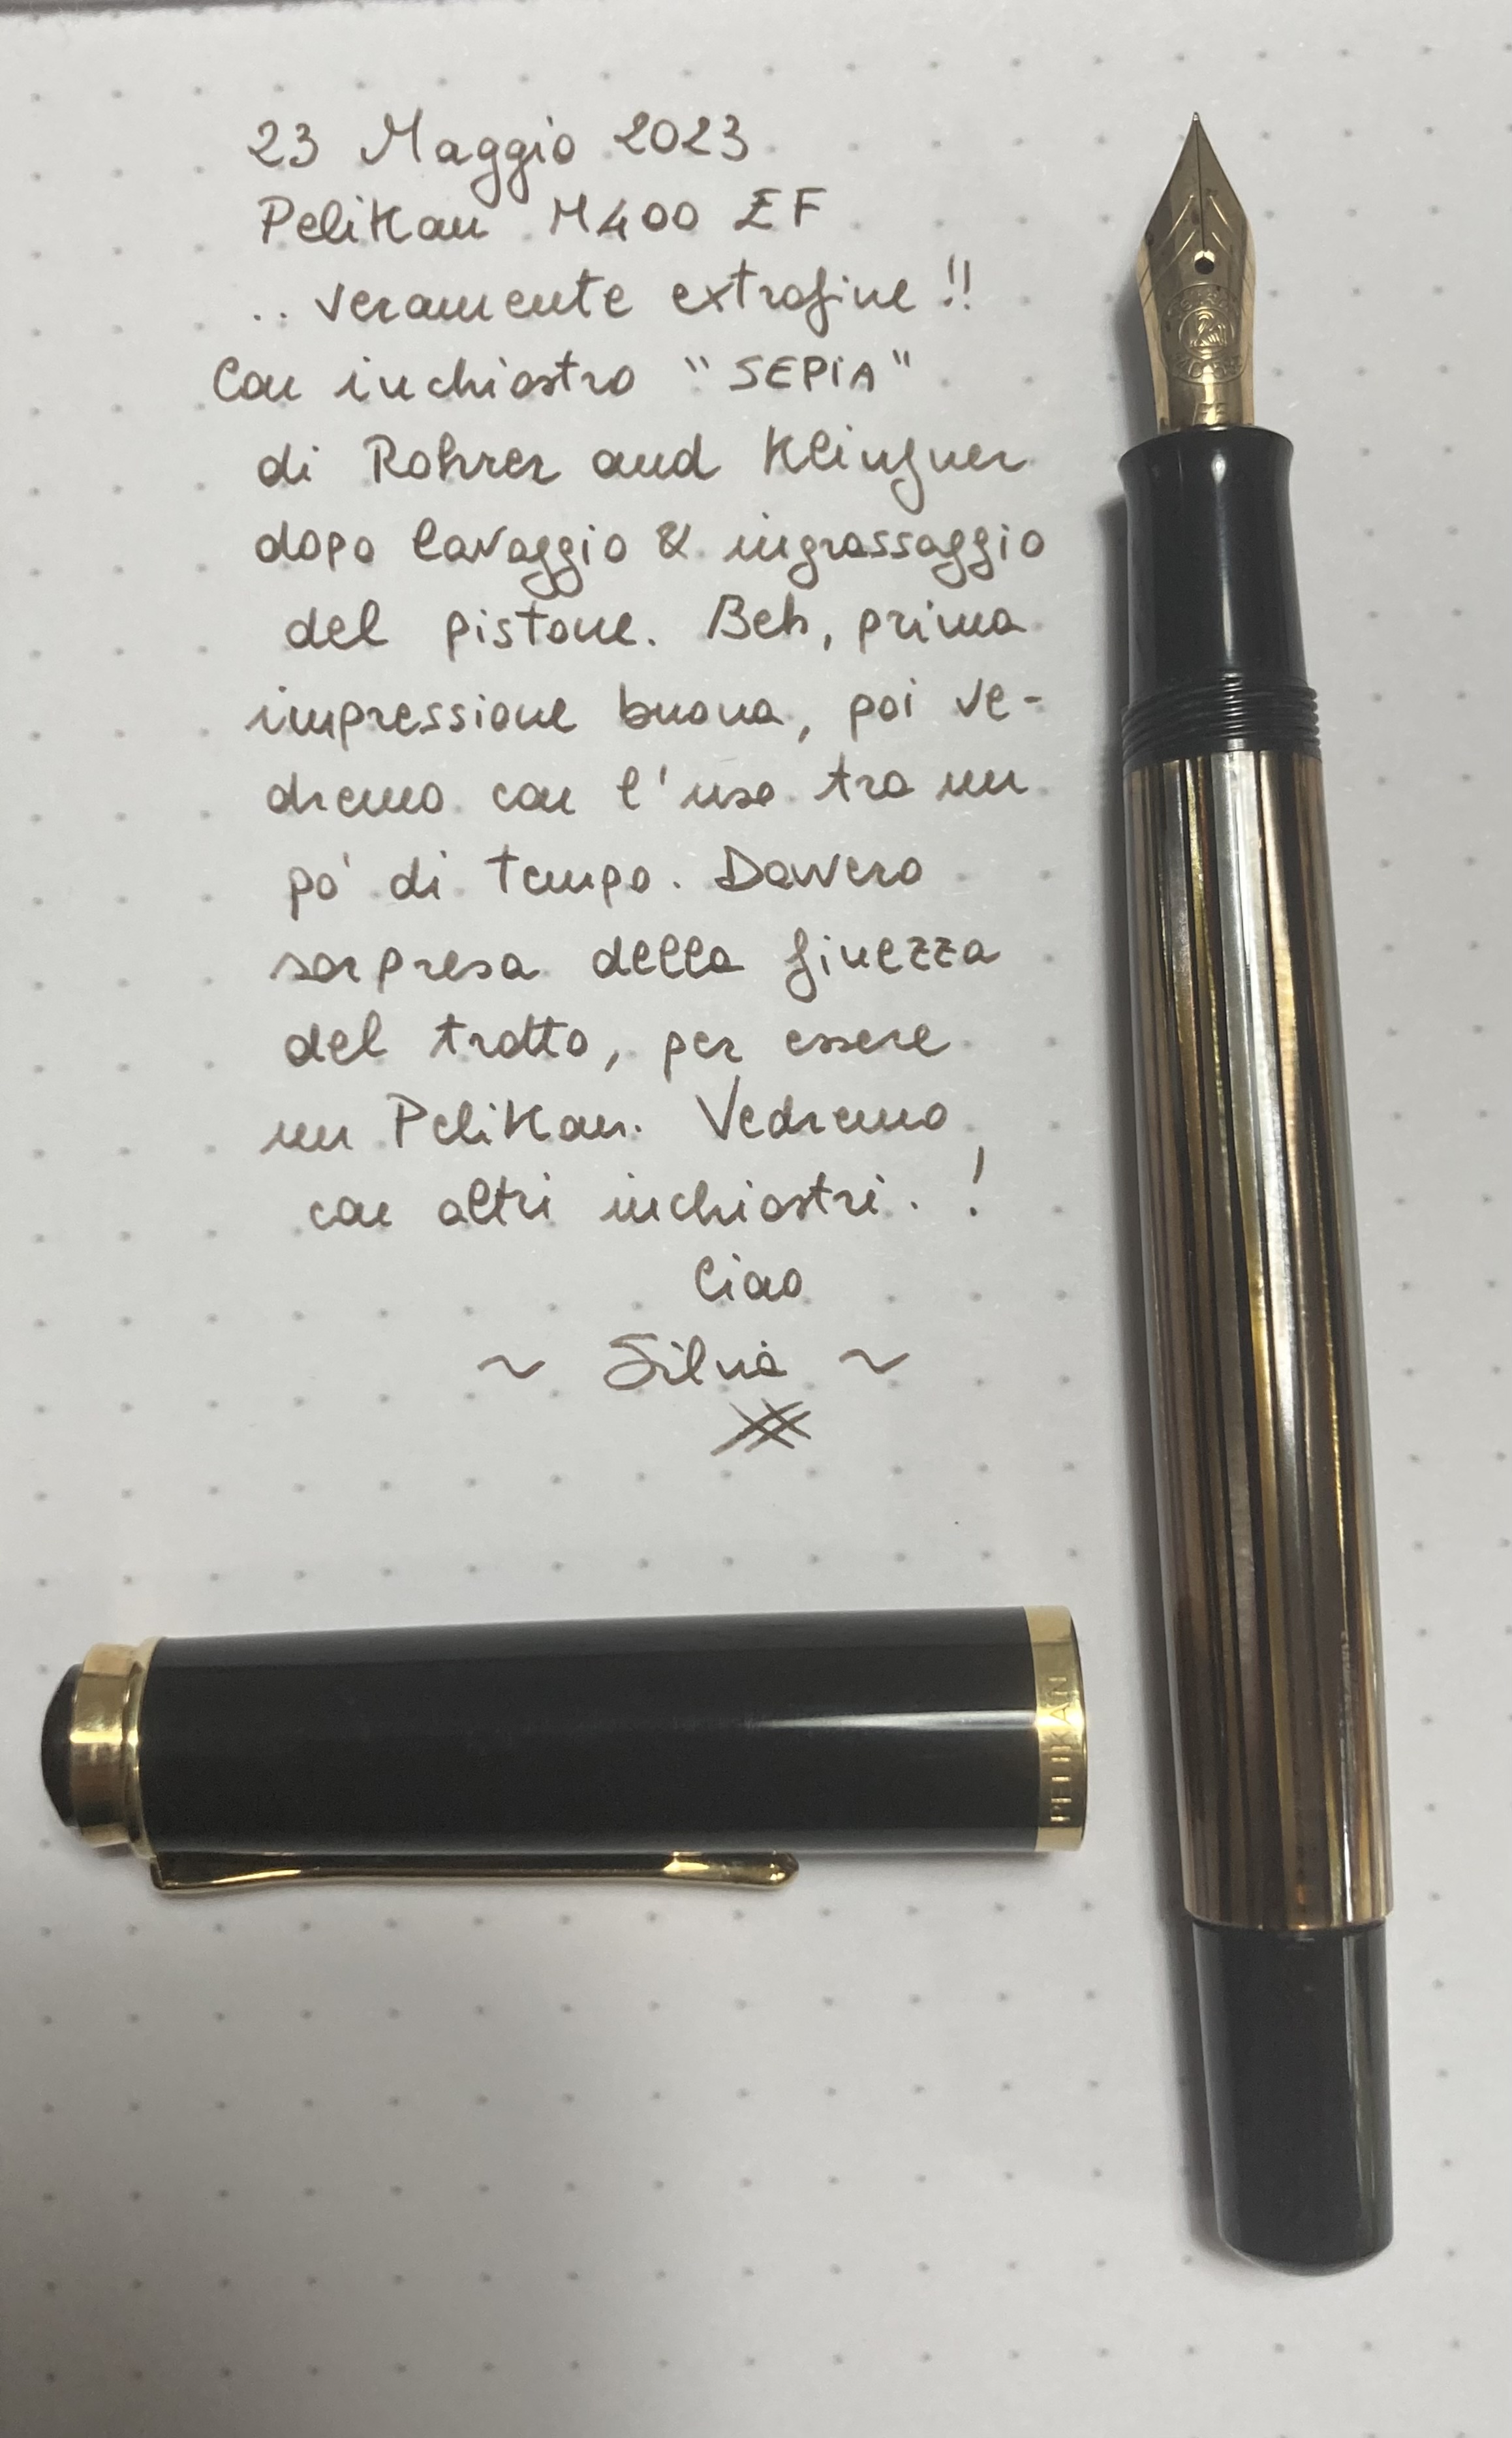 23 Maggio 2023
Pelikan M400 EF
.. veramente extrafine !!
Con inchiostro "SEPIA"
di Rohrer and Klingner
dopo lavaggio & ingrassaggio
del pistone. Beh, prima
impressione buona, poi ve-
dremo con l'uso tra un
po' di tempo. Davvero
sorpresa della finezza
del tratto, per essere
un Pelikan. Vedremo
con altri inchiostri. !
Ciao
~ Silvia ~
PELIKAN